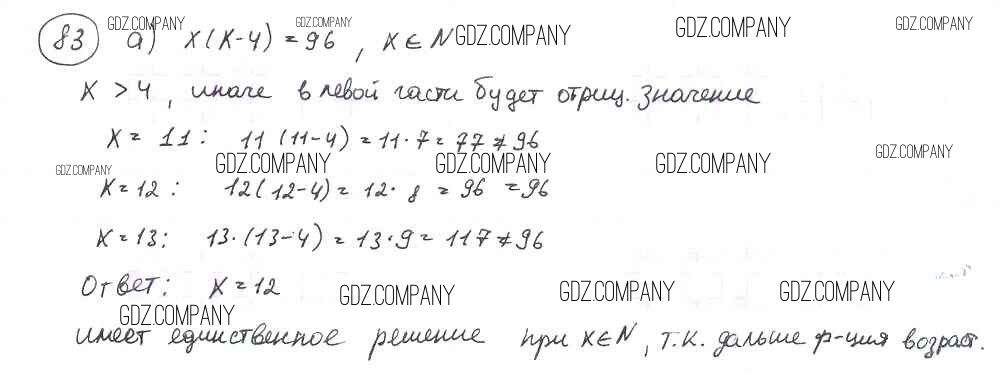 83 а) x(x-4) = 96, x ∈ N
GDZ.COMPANY GDZ.COMPANY GDZ.COMPANY GDZ.COMPANY GDZ.COMPANY
x > 4, иначе в левой части будет отриц. значение
x = 11: 11(11-4) = 11·7 = 77 ≠ 96
GDZ.COMPANY GDZ.COMPANY GDZ.COMPANY GDZ.COMPANY GDZ.COMPANY
x = 12: 12(12-4) = 12·8 = 96 = 96
x = 13: 13·(13-4) = 13·9 = 117 ≠ 96
Ответ: x = 12
GDZ.COMPANY GDZ.COMPANY GDZ.COMPANY
GDZ.COMPANY
имеет единственное решение при x ∈ N, т.к. дальше ф-ция возраст.